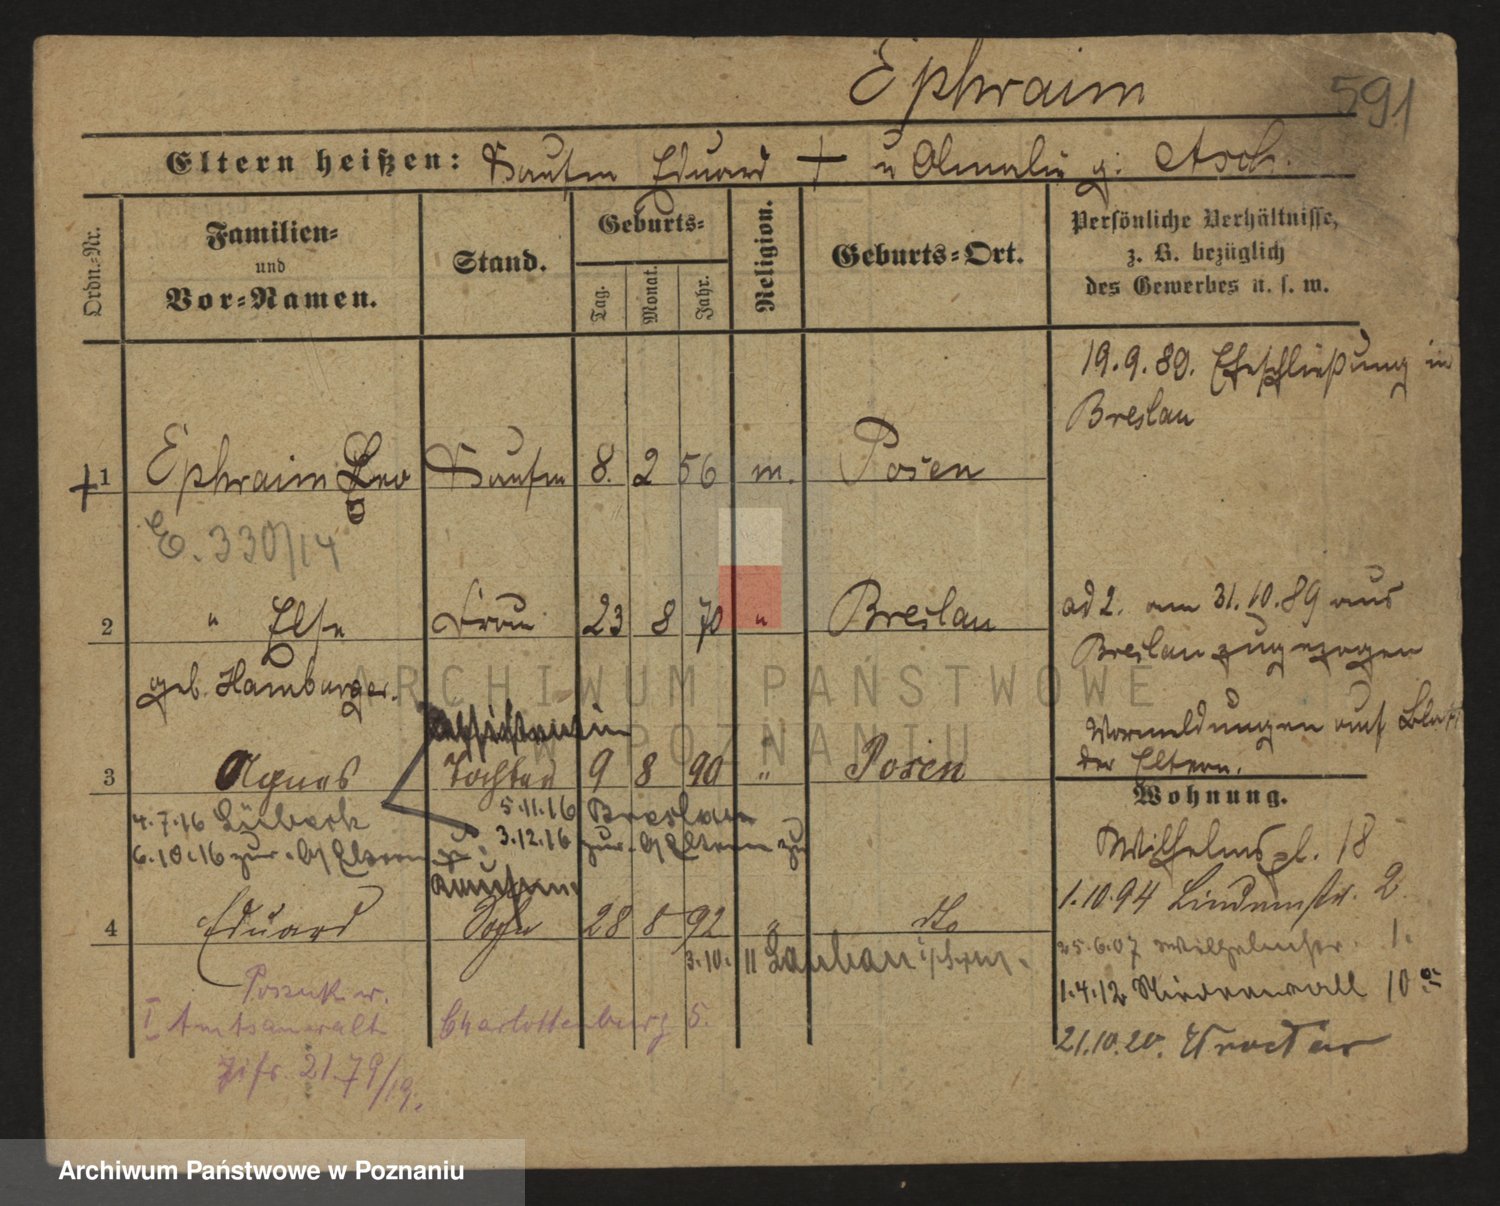 Ephraim 591
Eltern heißen: Kaufm Eduard † u Amalie g. Asch.
Ordn.=Nr.
Familien=
und
Vor=Namen.
Stand.
Geburts=
Tag. Monat. Jahr.
Religion.
Geburts=Ort.
Persönliche Verhältnisse,
z. B. bezüglich
des Gewerbes u. s. w.
19.9.89. Eheschließung in
Breslau
† 1 Ephraim Leo Kaufm 8. 2 56 m. Posen
E. 330/14
2 " Else Frau 23 8 70 " Breslau
geb. Hamburger.
ad 2. am 31.10.89 aus
Breslau zugezogen
Vormeldungen auf Blatt
der Eltern.
3 Agnes Tochter 9 8 90 " Posen
4.7.16 Lübeck 5.11.16 Breslau
6.10.16 zur. b/ Eltern 3.12.16 zur. b/ Eltern zu
Kaufm.
4 Eduard Sohn 28 8 92 " dto
3.10. 11 Lauban
I Amtsanwalt Charlottenburg 5.
21.79/19.
Wohnung.
Wilhelmspl. 18
1.10.94 Lindenstr. 2
25.6.07 Wilhelmstr. 1.
1.4.12 Niederwall 10
21.10.20.
ARCHIWUM PAŃSTWOWE
W POZNANIU
Archiwum Państwowe w Poznaniu